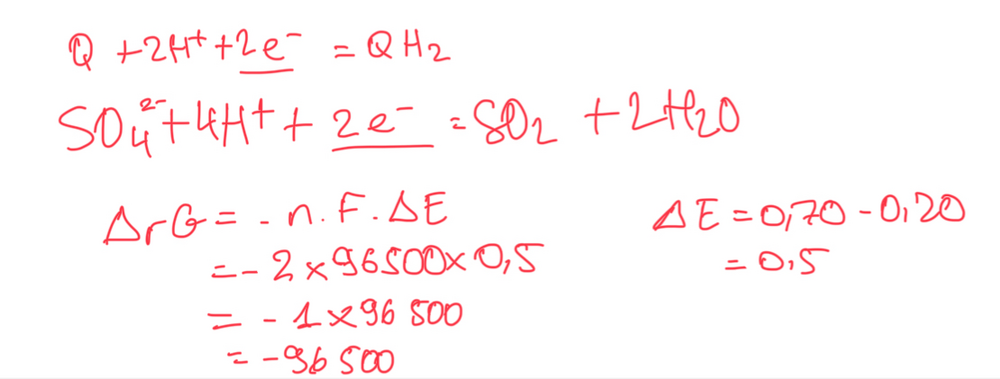 Q + 2H⁺ + 2e⁻ = QH₂
SO₄²⁻ + 4H⁺ + 2e⁻ = SO₂ + 2H₂O
ΔrG = - n.F.ΔE
= - 2 × 96500 × 0,5
= - 1 × 96 500
= - 96 500
ΔE = 0,70 - 0,20
= 0,5